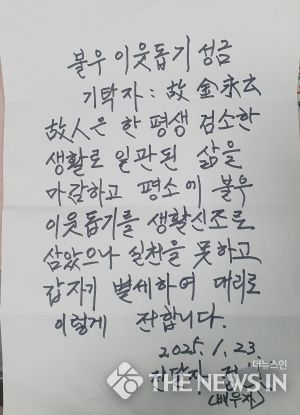 불우 이웃돕기 성금
기탁자: 故 金永玄
故人은 한 평생 검소한
생활로 일관된 삶을
마감하고 평소에 불우
이웃돕기를 생활신조로
삼았으나 실천을 못하고
갑자기 별세하여 대리로
이렇게 전합니다.
2025. 1. 23
전달자
(배우자)
더뉴스인
THE NEWS IN